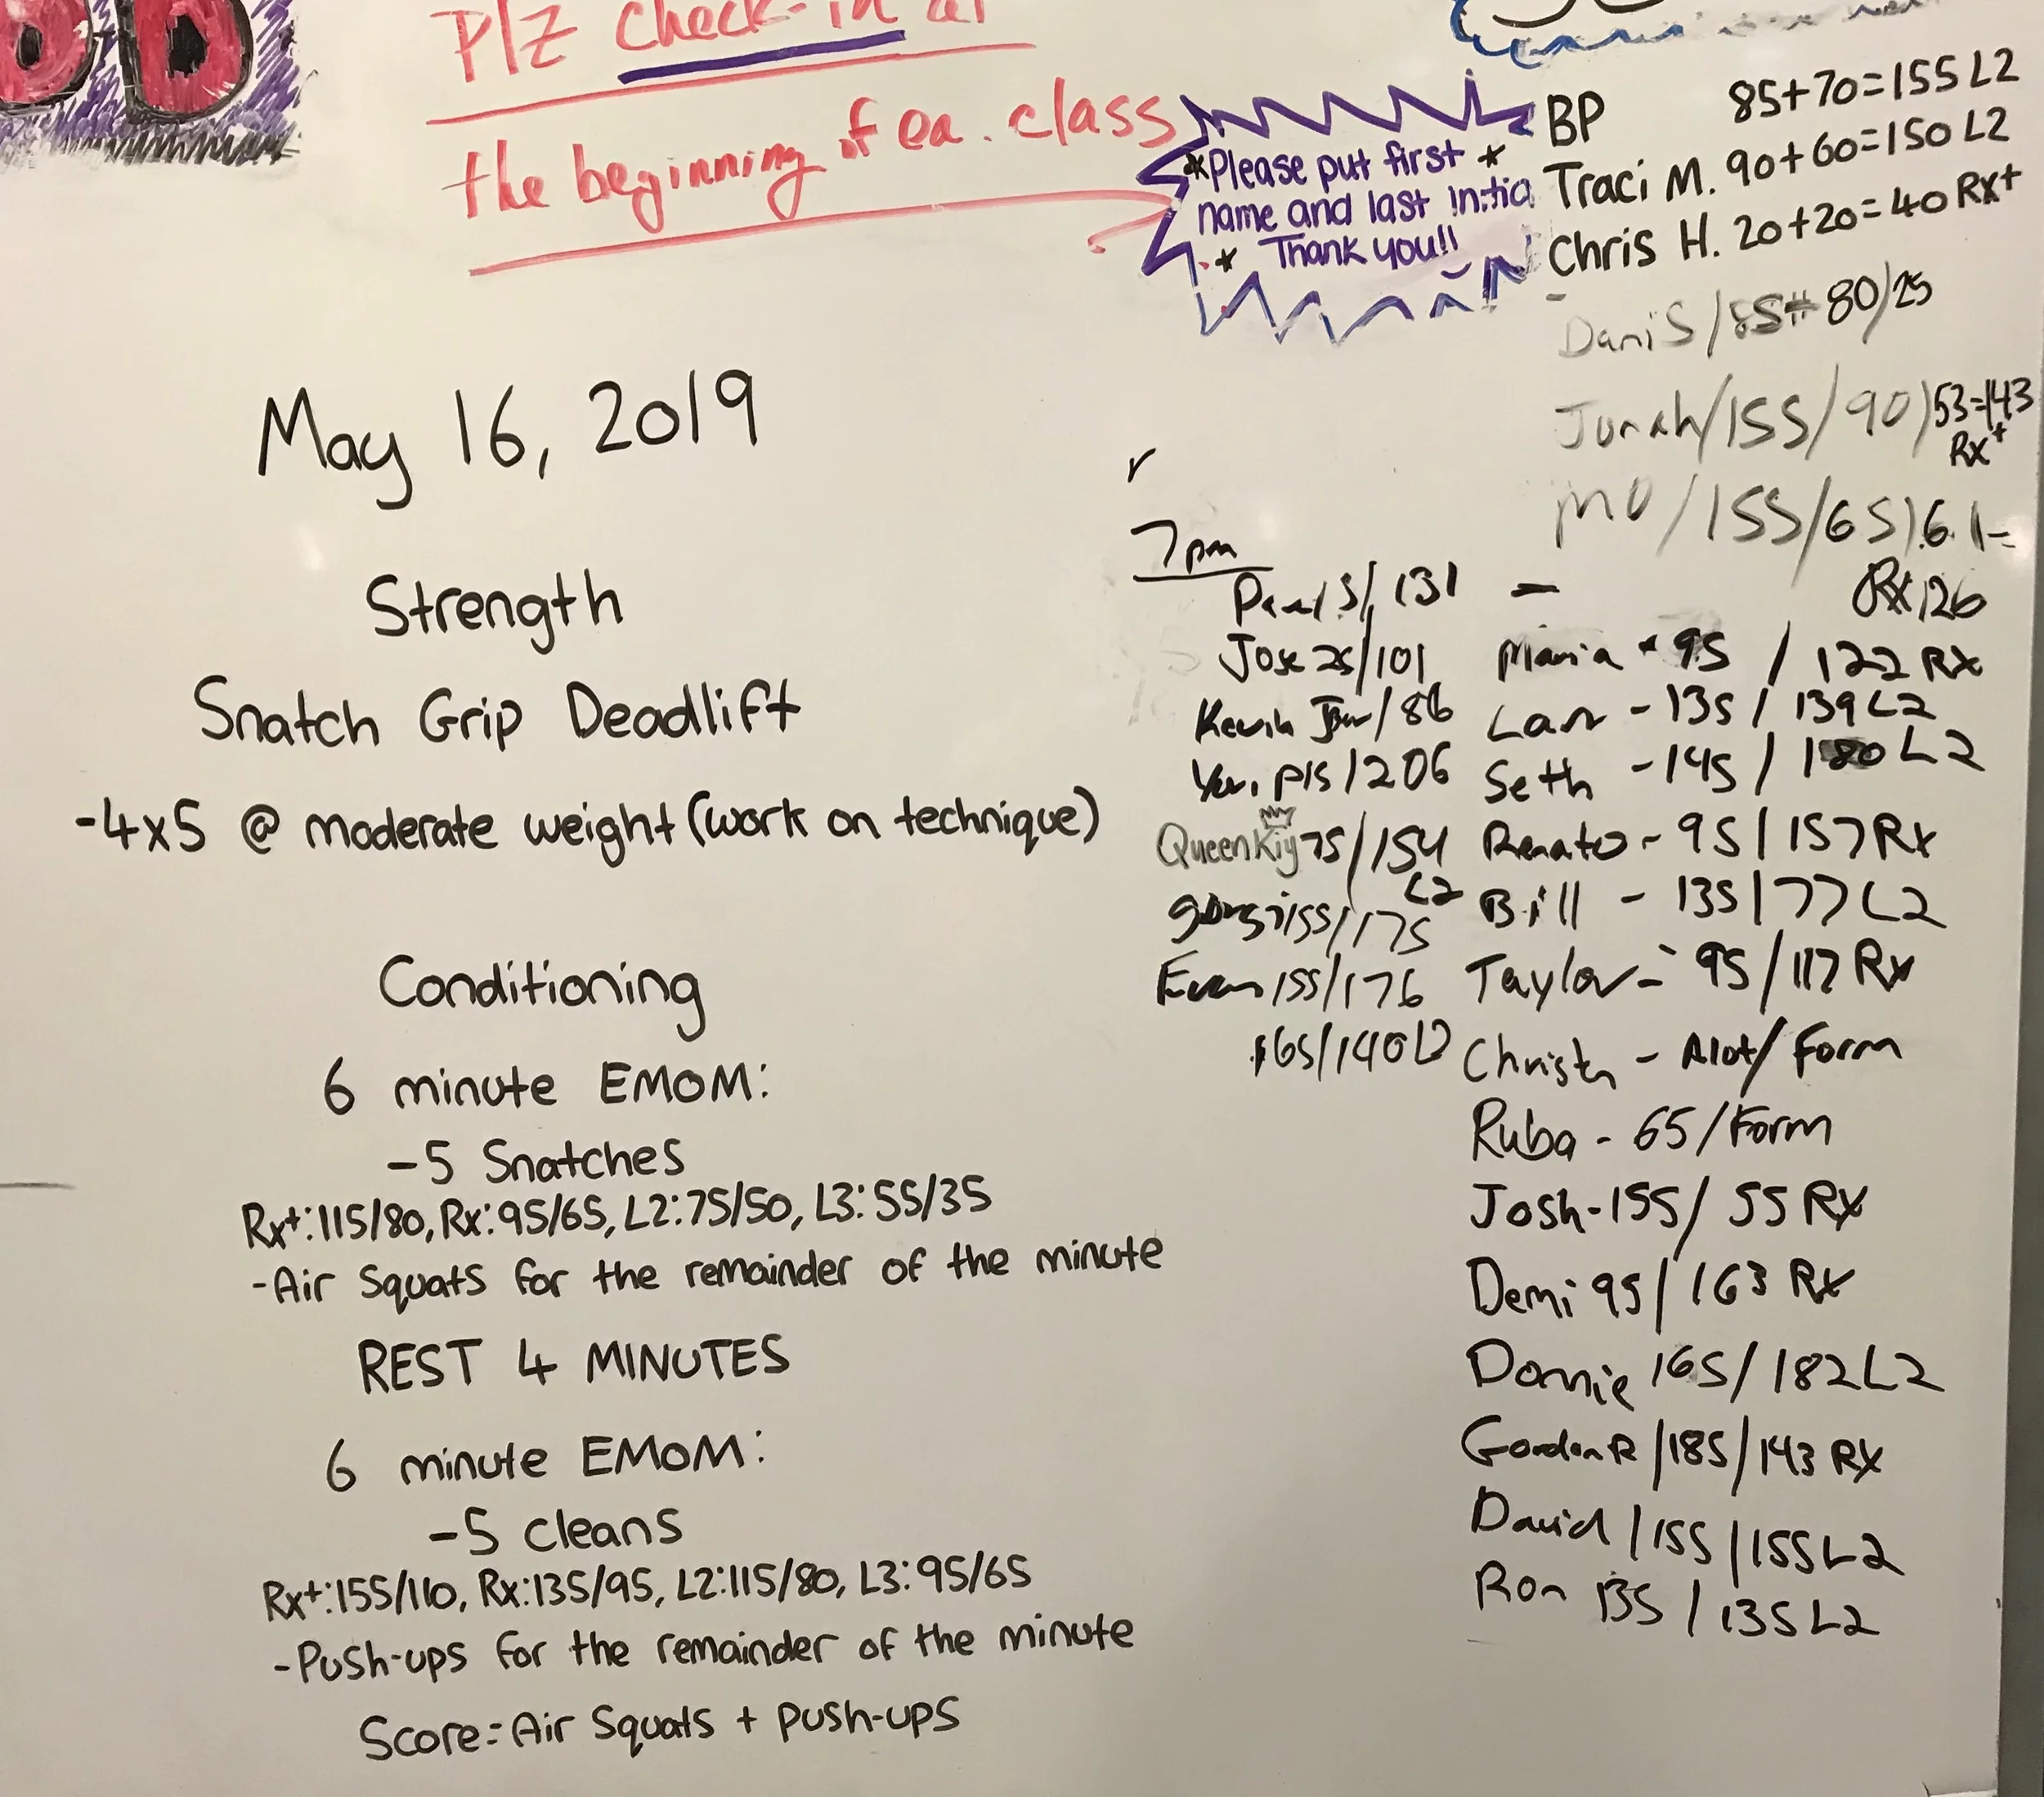 Plz check-in at
the beginning of ea. class
*Please put first *
name and last initia
* Thank you!!
BP 85+70=155 L2
Traci M. 90+60=150 L2
Chris H. 20+20=40 Rx+
Dani S / 85# 80/25
/155/90) 53=143
Rx+
MO/155/65) 61=
Rx 126
May 16, 2019
Strength
Snatch Grip Deadlift
-4x5 @ moderate weight (work on technique)
Conditioning
6 minute EMOM:
-5 Snatches
Rx+:115/80, Rx:95/65, L2:75/50, L3:55/35
-Air Squats for the remainder of the minute
REST 4 MINUTES
6 minute EMOM:
-5 Cleans
Rx+:155/110, Rx:135/95, L2:115/80, L3:95/65
-Push-ups for the remainder of the minute
Score=Air Squats + push-ups
7pm
/131
Jose 25/101
Kevin /86
/206
Queen Kiy 75/154
L2
155/175
Evan 155/176
165/140
Maria - 95 / 122 Rx
- 135 / 139 L2
Seth - 145 / 180 L2
Renato - 95 / 157 Rx
Bill - 135/77 L2
Taylor - 95/117 Rx
- Alot/Form
Ruba - 65/Form
Josh-155/ 55 Rx
Demi 95/ 163 Rx
Donnie 165/182 L2
Gordon R /185/143 RX
David /155 /155 L2
Ron 135 / 135 L2